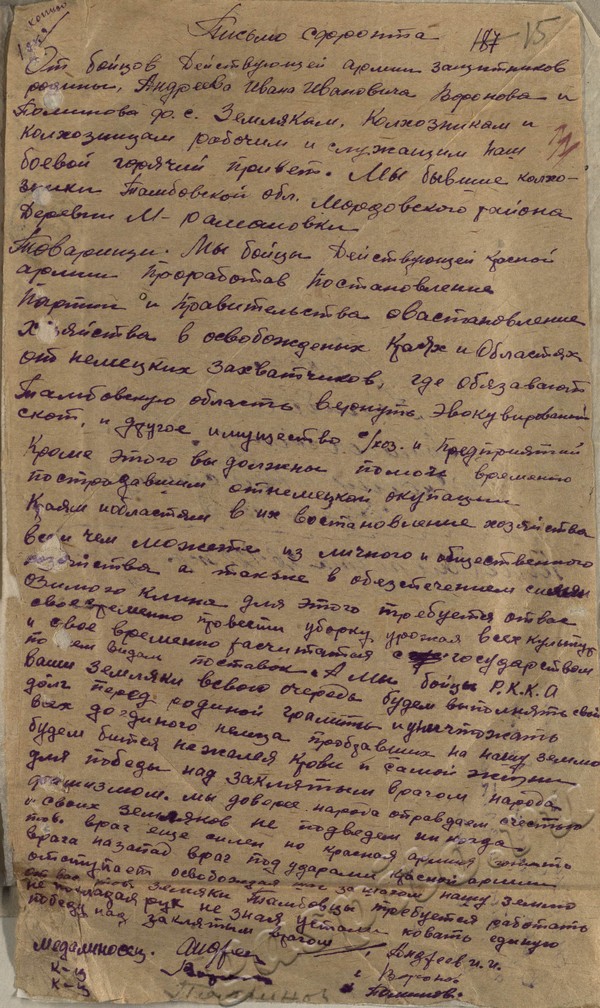 Письмо сфронта
187 15
От бойцов Действующей армии защитников
родины, Андреева Ивана Ивановича Воронова и
др. с. Землякам, Колхозникам и
колхозницам рабочим и служащим наш
боевой горячий привет. Мы бывшие колхо-
зники Тамбовской обл. Мордовского района
Деревни М-рамановки
Товарищи. Мы бойцы Действующей красной
армии Проработав Постановление
Партии и правительства овастановление
хозяйства в освобожденых Краях и Областях
от немецких захватчиков, где обязавают
Тамбовскую область вернуть эвокуированый
скот, и другое имущество с/хоз. и предприятий
Кроме этого вы должны помочь временно
пострадавшим отнемецкой окупации
Краям иобластям в их востановление хозяйства
всем чем можете из личного и общественного
хозяйства а также в обеспечением семян
озимого клина для этого требуется отвас
своевременно провести уборку урожая всех культур
и свое временно расчитатся с государством
по всем видам поставок. А Мы бойцы Р.К.К.А
ваши земляки всвою очередь будем выполнять свой
долг перед родиной громить иуничтожать
всех до единого немца пробравших на нашу землю
будем битса нежалея крови и самой жизни
для победы над заклятым врагом народа
фашизмом. мы доверее народа оправдаем счестью
и своих земляков не подведем ни когда
тов. враг еще силен но Красная армия
врага назапад враг под ударами красной армии
отступает освобождая шаг за шагом нашу землю
от вас тов. земляки Тамбовцы требуется работать
не покладая рук не зная устали ковать единую
победу над заклятым врагом
медалиносец. Андреев Андреев И.И.
к-ц Воронов
к-ц